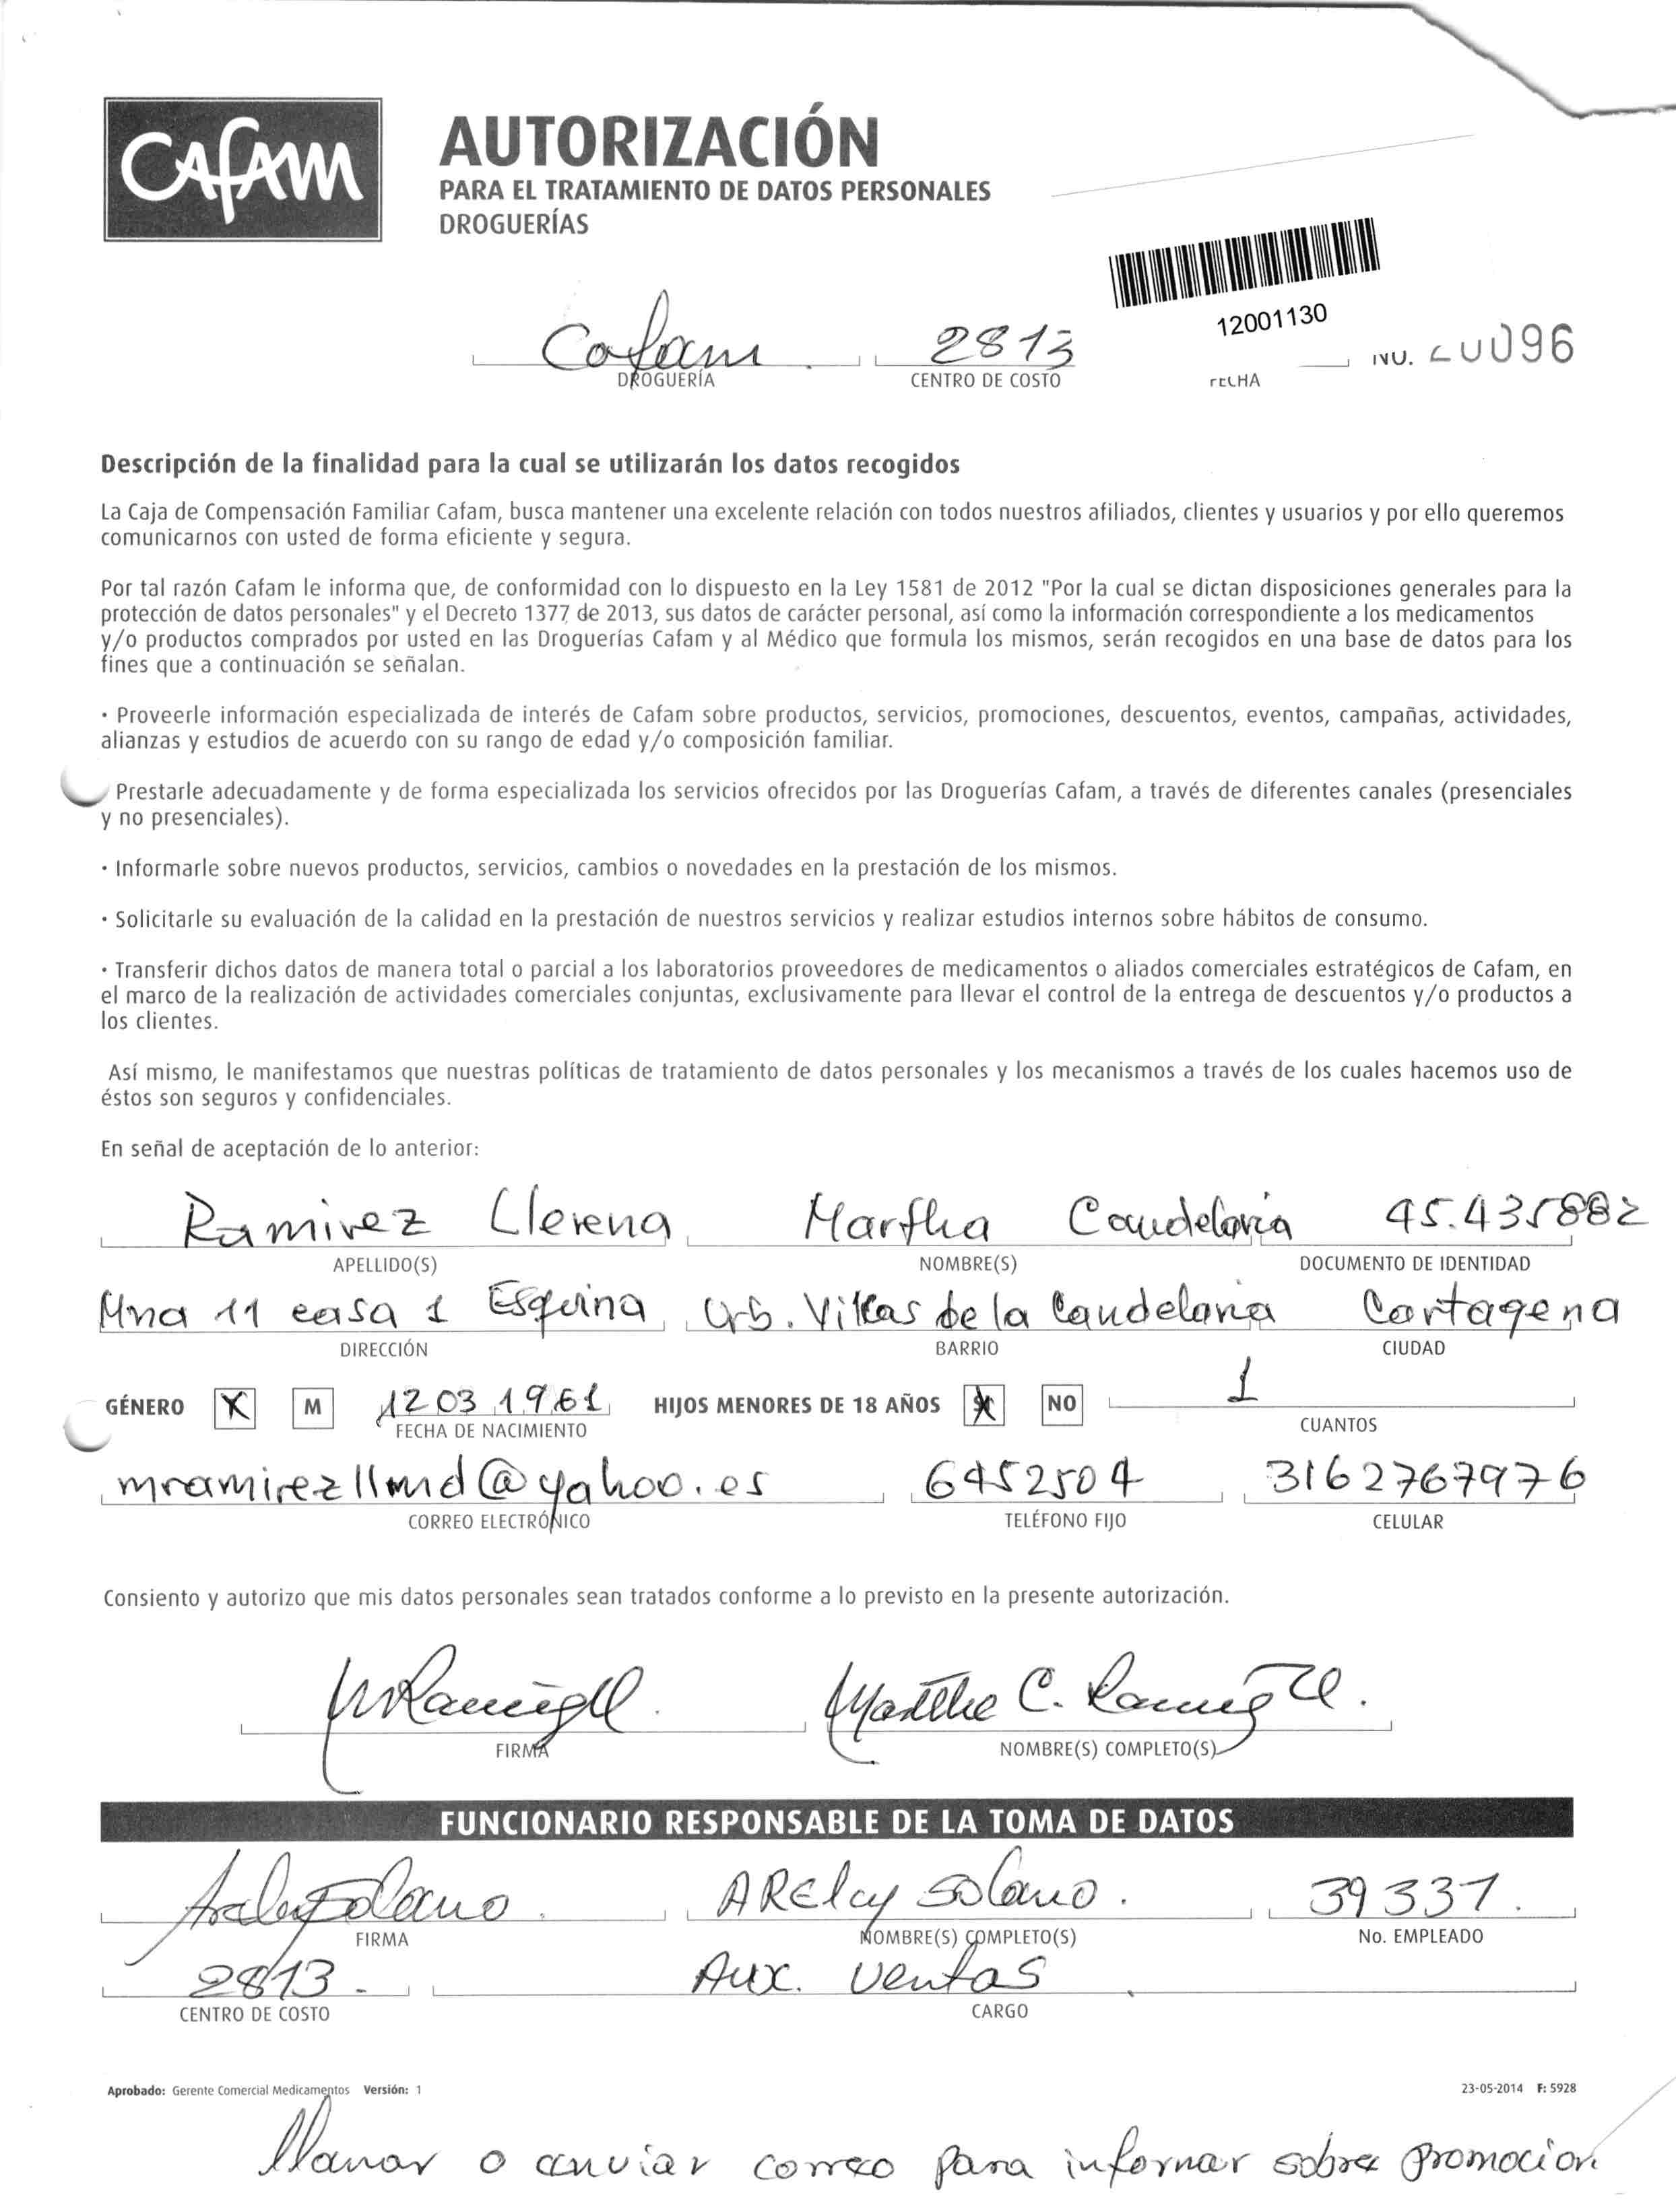 CAFAM
AUTORIZACIÓN
PARA EL TRATAMIENTO DE DATOS PERSONALES
DROGUERÍAS
12001130
Cafam 2813 No. 20096
DROGUERÍA CENTRO DE COSTO FECHA
Descripción de la finalidad para la cual se utilizarán los datos recogidos
La Caja de Compensación Familiar Cafam, busca mantener una excelente relación con todos nuestros afiliados, clientes y usuarios y por ello queremos
comunicarnos con usted de forma eficiente y segura.
Por tal razón Cafam le informa que, de conformidad con lo dispuesto en la Ley 1581 de 2012 "Por la cual se dictan disposiciones generales para la
protección de datos personales" y el Decreto 1377 de 2013, sus datos de carácter personal, así como la información correspondiente a los medicamentos
y/o productos comprados por usted en las Droguerías Cafam y al Médico que formula los mismos, serán recogidos en una base de datos para los
fines que a continuación se señalan.
· Proveerle información especializada de interés de Cafam sobre productos, servicios, promociones, descuentos, eventos, campañas, actividades,
alianzas y estudios de acuerdo con su rango de edad y/o composición familiar.
Prestarle adecuadamente y de forma especializada los servicios ofrecidos por las Droguerías Cafam, a través de diferentes canales (presenciales
y no presenciales).
· Informarle sobre nuevos productos, servicios, cambios o novedades en la prestación de los mismos.
· Solicitarle su evaluación de la calidad en la prestación de nuestros servicios y realizar estudios internos sobre hábitos de consumo.
· Transferir dichos datos de manera total o parcial a los laboratorios proveedores de medicamentos o aliados comerciales estratégicos de Cafam, en
el marco de la realización de actividades comerciales conjuntas, exclusivamente para llevar el control de la entrega de descuentos y/o productos a
los clientes.
Así mismo, le manifestamos que nuestras políticas de tratamiento de datos personales y los mecanismos a través de los cuales hacemos uso de
éstos son seguros y confidenciales.
En señal de aceptación de lo anterior:
Ramirez Llerena Martha Candelaria 45.435882
APELLIDO(S) NOMBRE(S) DOCUMENTO DE IDENTIDAD
Mna 11 casa 1 Esquina Urb. Villas de la Candelaria Cartagena
DIRECCIÓN BARRIO CIUDAD
GÉNERO X M 12 03 1961 HIJOS MENORES DE 18 AÑOS X NO 1
FECHA DE NACIMIENTO CUANTOS
mramirezllmd@yahoo.es 6452504 3162767976
CORREO ELECTRÓNICO TELÉFONO FIJO CELULAR
Consiento y autorizo que mis datos personales sean tratados conforme a lo previsto en la presente autorización.
MRamirezll. Martha C. Ramirez Ll.
FIRMA NOMBRE(S) COMPLETO(S)
FUNCIONARIO RESPONSABLE DE LA TOMA DE DATOS
Arely Solano ARElcy Solano. 39337.
FIRMA NOMBRE(S) COMPLETO(S) No. EMPLEADO
2813. Aux. Ventas
CENTRO DE COSTO CARGO
Aprobado: Gerente Comercial Medicamentos Versión: 1 23-05-2014 F: 5928
llamar o enviar correo para informar sobre promocion